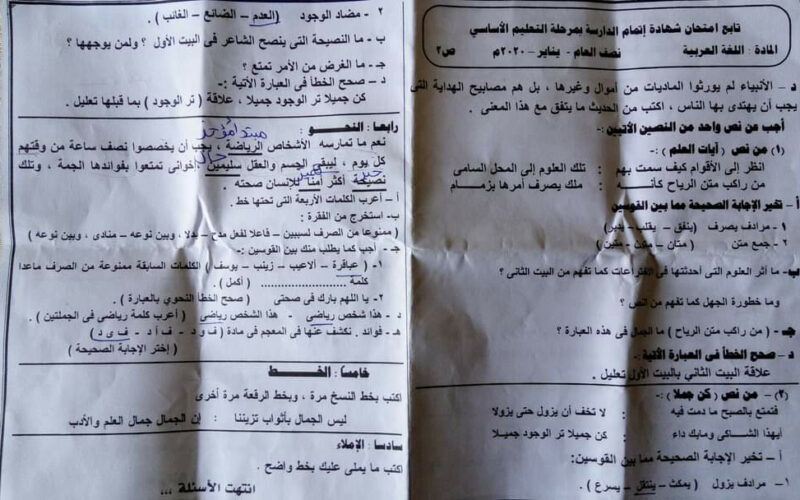 تابع امتحان شهادة إتمام الدراسة بمرحلة التعليم الأساسي
المادة : اللغة العربية نصف العام - يناير - ٢٠٢٠م ص٢
د – الأنبياء لم يورثوا الماديات من أموال وغيرها ، بل هم مصابيح الهداية التى
يجب أن يهتدى بها الناس ، اكتب من الحديث ما يتفق مع هذا المعنى .
أجب من نص واحد من النصين الآتيين :-
(١) من نص ( آيات العلم ) :-
انظر إلى الأقوام كيف سمت بهم : تلك العلوم إلى المحل السامى
من راكب متن الرياح كأنـــه : ملك يصرف أمرها بزمام
أ – تخير الإجابة الصحيحة مما بين القوسين
١ - مرادف يصرف (ينفق – يقلب – يدبر)
٢ - جمع متن (متان – مكن – متين )
ب- ما أثر العلوم التى أحدثتها فى الاختراعات كما تفهم من البيت الثانى ؟
وما خطورة الجهل كما تفهم من النص ؟
جـ - ( من راكب متن الرياح ) ما الجمال فى هذه العبارة ؟
د – صحح الخطأ فى العبارة الآتية :-
علاقة البيت الثاني بالبيت الأول تعليل .
(٢) – من نص ( كن جملا ) :-
فتمتع بالصبح ما دمت فيه : لا تخف أن يزول حتى يزولا
أيهذا الشاكى ومابك داء : كن جميلا تر الوجود جميلا
أ – تخير الإجابة الصحيحة مما بين القوسين:
١ - مرادف يزول ( يمكث – ينتقل – يسرع ) .
٢ - مضاد الوجود (العدم – الضائع – الغائب ) .
ب – ما النصيحة التى ينصح الشاعر فى البيت الأول ؟ ولمن يوجهها ؟
جـ – ما الغرض من الأمر تمتع ؟
د – صحح الخطأ فى العبارة الآتية :-
كن جميلا تر الوجود جميلا ، علاقة ( تر الوجود ) بما قبلها تعليل .
رابعا : النحــو :
مبتدأ مؤخر
نعم ما تمارسه الأشخاص الرياضة ، يجب أن يخصصوا نصف ساعة من وقتهم
حال
كل يوم ، ليبقى الجسم والعقل سليمين إخوانى تمتعوا بفوائدها الجمة ، وتلك
خبر تمييز
نصيحة أكثر أمنا للإنسان صحته .
أ – أعرب الكلمات الأربعة التى تحتها خط .
ب- استخرج من الفقرة :
( ممنوعا من الصرف لسببين – فاعلا لفعل مدح – بدلا ، وبين نوعه – منادى ، وبين نوعه )
جـ - أجب كما يطلب منك بين القوسين:-
١- ( عباقرة – ألاعيب – زينب – يوسف ) الكلمات السابقة ممنوعة من الصرف ماعدا
كلمة ...................... ( أكمل ) .
٢ - يا اللهم بارك فى صحتى ( صحح الخطأ النحوي بالعبارة ) .
د – هذا شخص رياضي - هذا الشخص رياضي ( أعرب كلمة رياضى فى الجملتين ) .
هـ - فوائد . نكشف عنها فى المعجم فى مادة ( ف و د - ف أ د - ف ى د )
( إختر الإجابة الصحيحة )
خامسا : الخــط
اكتب بخط النسخ مرة ، وبخط الرقعة مرة أخرى
ليس الجمال بأثواب تزيننا : إن الجمال جمال العلم والأدب
سادسا : الإملاء
اكتب ما يملى عليك بخط واضح .
انتهت الأسئلة ...